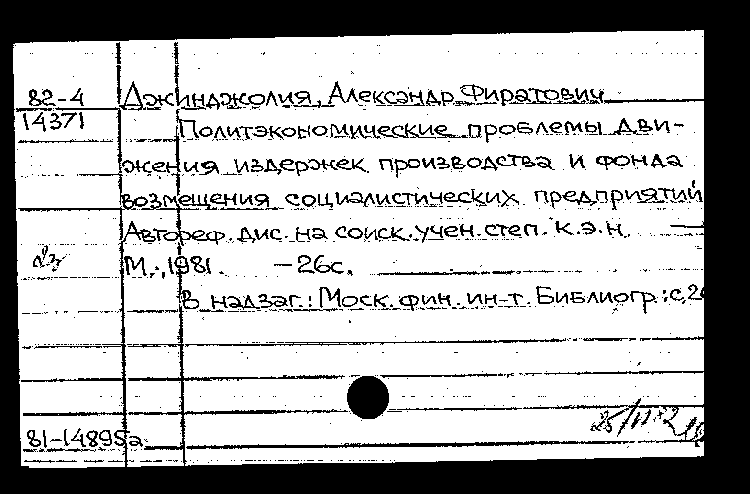 82-4 Джинджолия, Александр Фиратович
14371 Политэкономические проблемы дви-
жения издержек производства и фонда
возмещения социалистических предприятий
Автореф. дис. на соиск. учен. степ. к.э.н.
М., 1981. - 26с.
В надзаг.: Моск. фин. ин-т. Библиогр.: с.
81-14895а